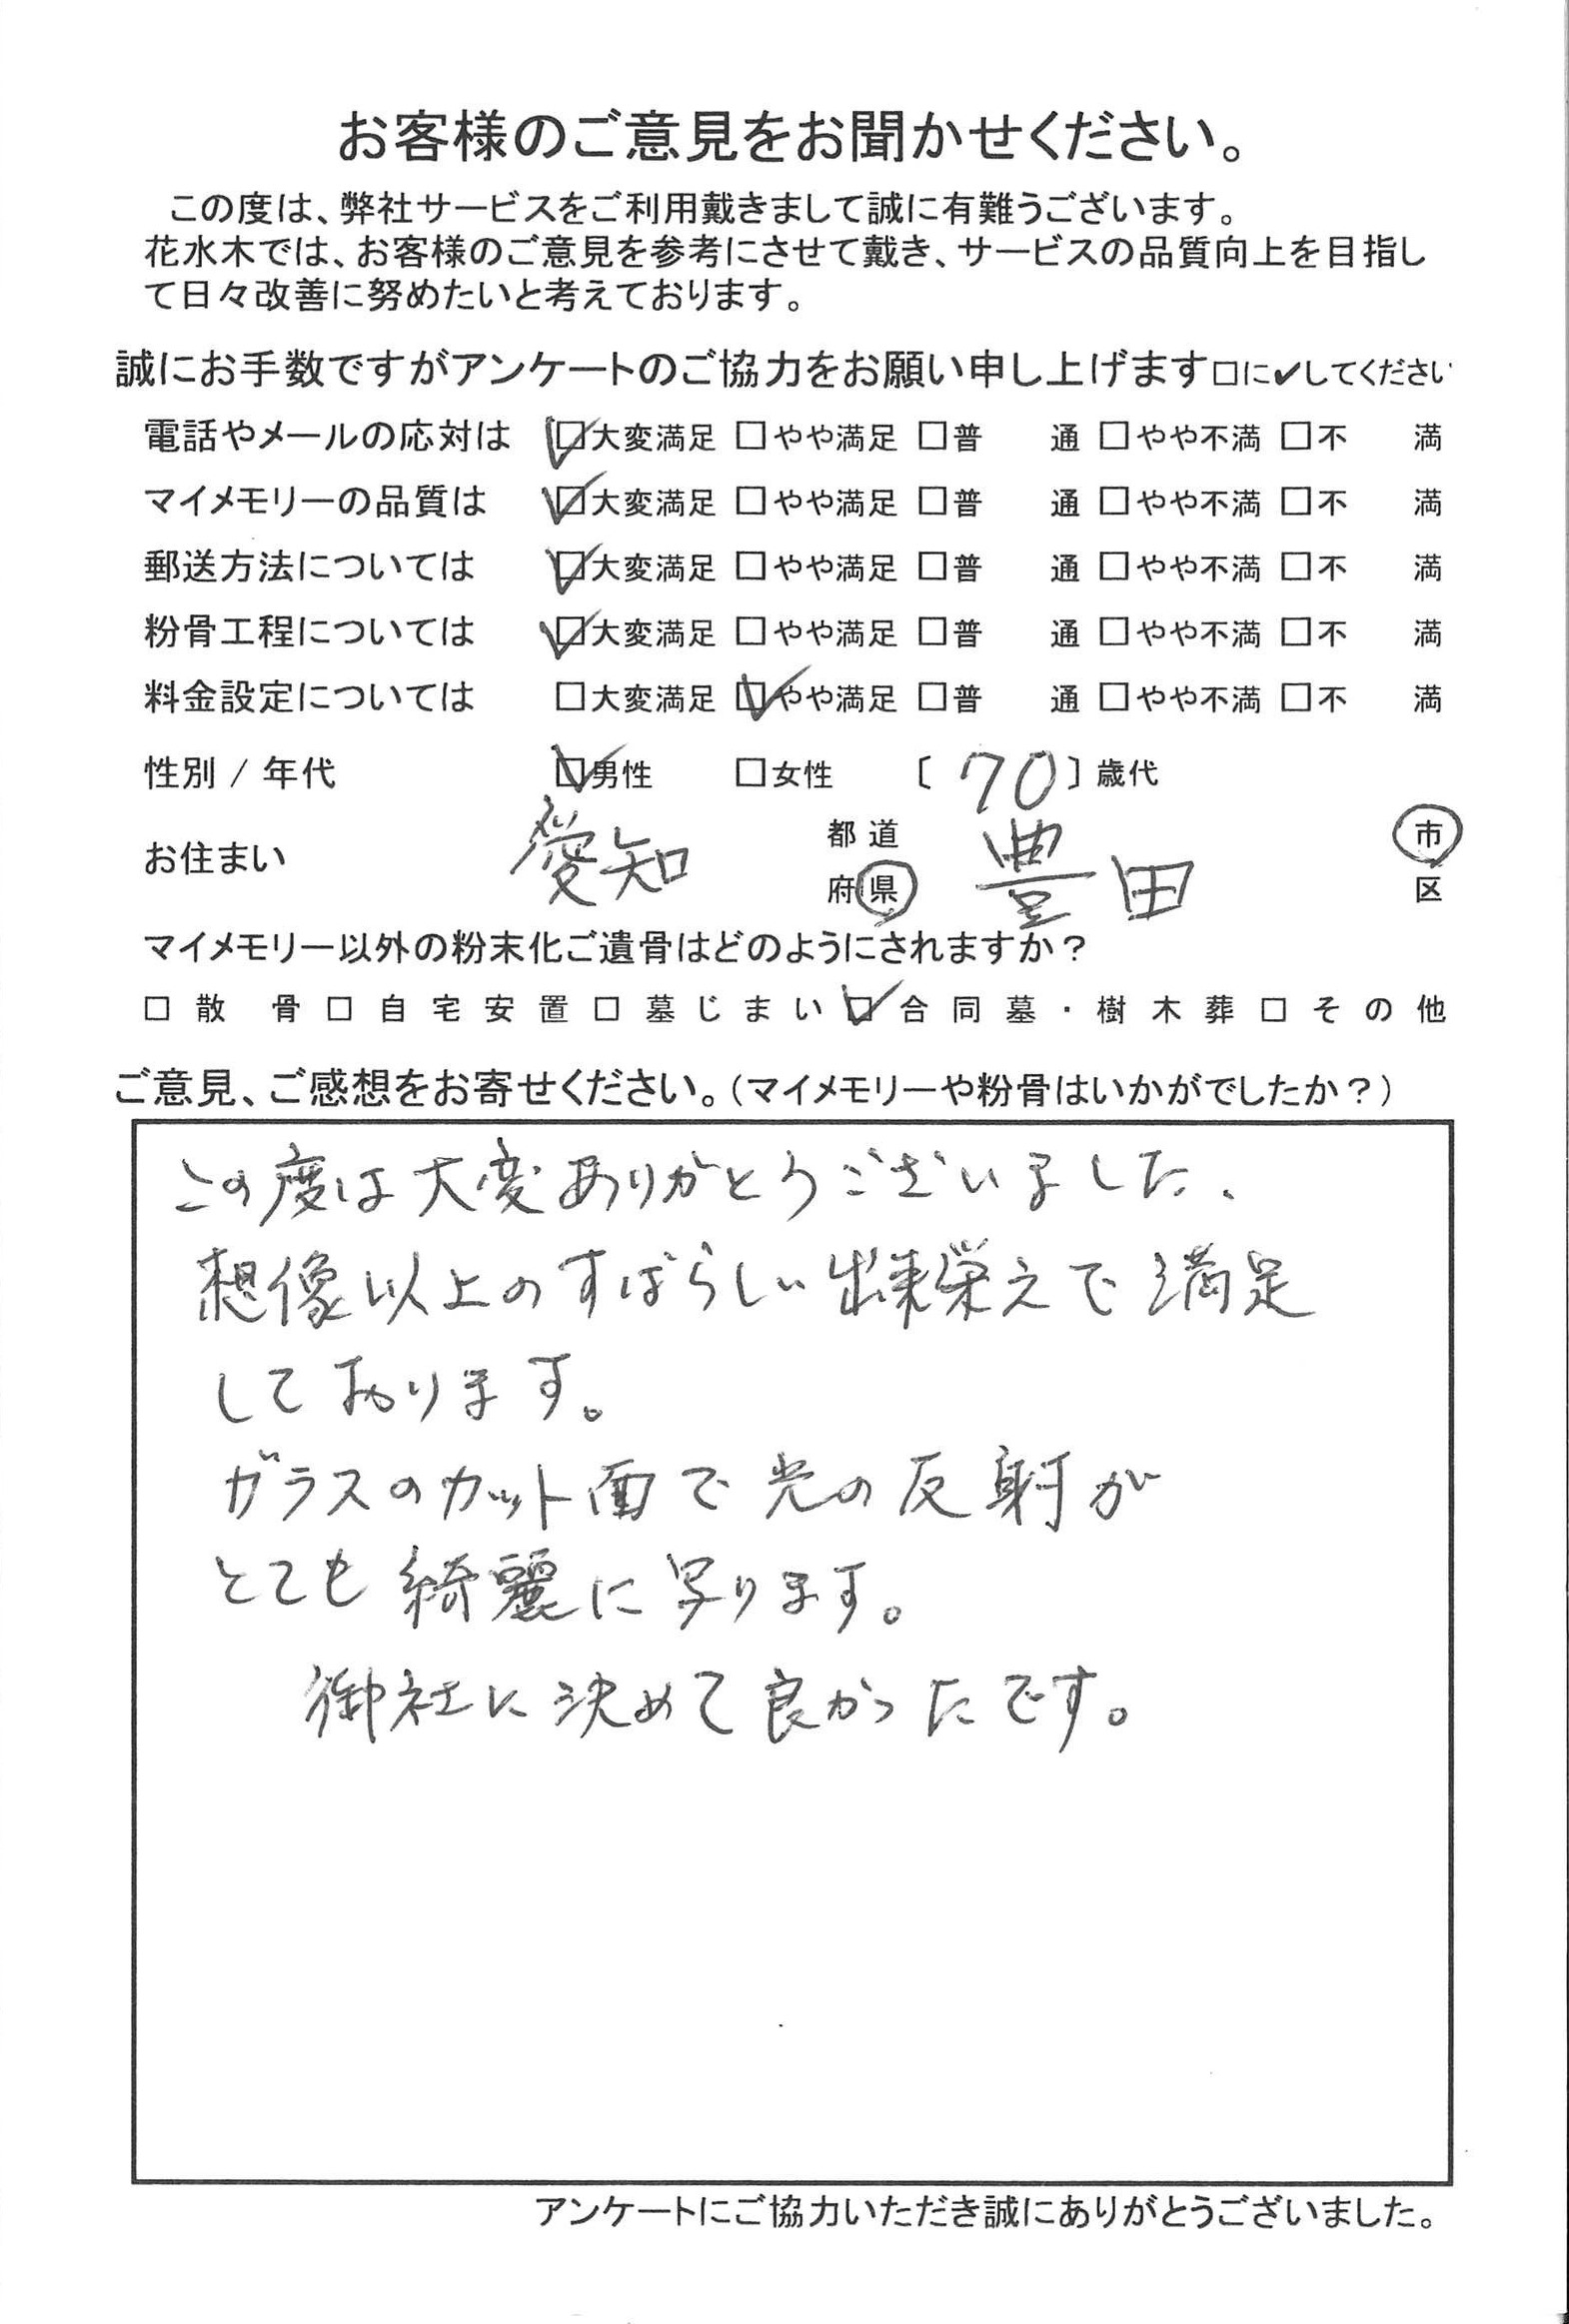 お客様のご意見をお聞かせください。
この度は、弊社サービスをご利用戴きまして誠に有難うございます。
花水木では、お客様のご意見を参考にさせて戴き、サービスの品質向上を目指し
て日々改善に努めたいと考えております。
誠にお手数ですがアンケートのご協力をお願い申し上げます□に✔してください
電話やメールの応対は ☑大変満足 □やや満足 □普 通 □やや不満 □不 満
マイメモリーの品質は ☑大変満足 □やや満足 □普 通 □やや不満 □不 満
郵送方法については ☑大変満足 □やや満足 □普 通 □やや不満 □不 満
粉骨工程については ☑大変満足 □やや満足 □普 通 □やや不満 □不 満
料金設定については □大変満足 ☑やや満足 □普 通 □やや不満 □不 満
性別 / 年代 ☑男性 □女性 〔 70 〕歳代
お住まい 愛知 都道府県 豊田 市区
マイメモリー以外の粉末化ご遺骨はどのようにされますか？
□散 骨 □自宅安置 □墓じまい ☑合同墓・樹木葬 □その他
ご意見、ご感想をお寄せください。（マイメモリーや粉骨はいかがでしたか？）
この度は大変ありがとうございました、
想像以上のすばらしい出来栄えで満足
しております。
ガラスのカット面で光の反射が
とても綺麗に写ります。
御社に決めて良かったです。
アンケートにご協力いただき誠にありがとうございました。